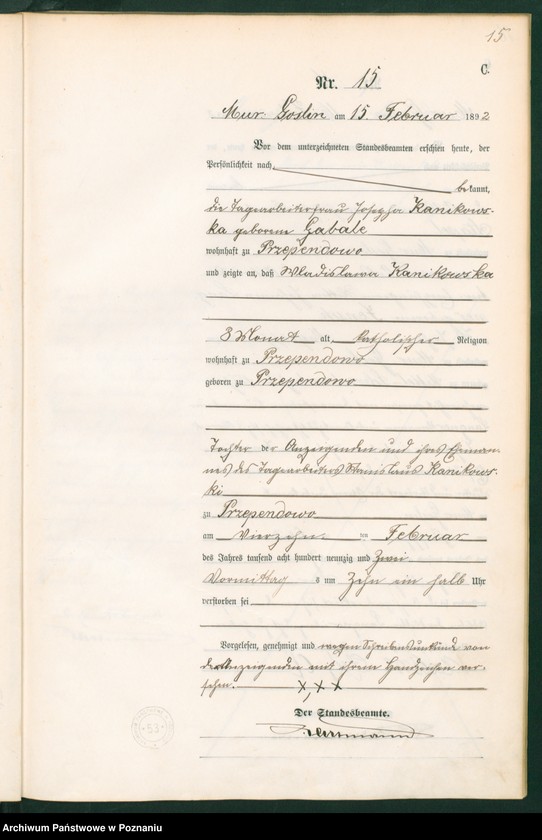 15
C.
Nr. 15
Mur. Goslin am 15. Februar 1892
Vor dem unterzeichneten Standesbeamten erschien heute, der
Persönlichkeit nach,
bekannt,
die Tagearbeiterfrau Josepha Kanikows-
ka geborene Gabale
wohnhaft zu Przependowo
und zeigte an, daß Wladislawa Kanikowska
3 Monat alt, katholischer Religion
wohnhaft zu Przependowo
geboren zu Przependowo
Tochter der Anzeigenden und ihres Ehman-
nes des Tagearbeiters Stanislaus Kanikows-
ki
zu Przependowo
am Vierzehn. Februar
des Jahres tausend acht hundert neunzig und Zwei
Vormittag s um Zehn ein halb Uhr
verstorben sei
Vorgelesen, genehmigt und wegen Schreibensunkunde von
der Anzeigenden mit ihrem Handzeichen ver-
sehen.
x, x x
Der Standesbeamte.
53
Archiwum Państwowe w Poznaniu